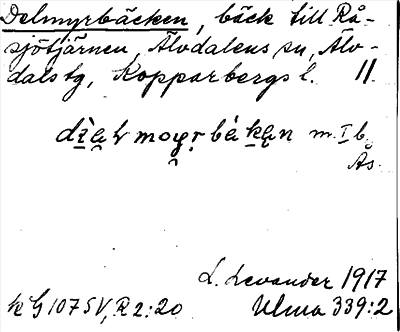 Delmyrbäcken, bäck till Rå-
sjötjärnen, Älvdalens sn, Älv-
dals tg, Kopparbergs l. 11.
m. I b.
Ås.
L. Levander 1917
k G 1075V, R 2:20 Ulma 339:2